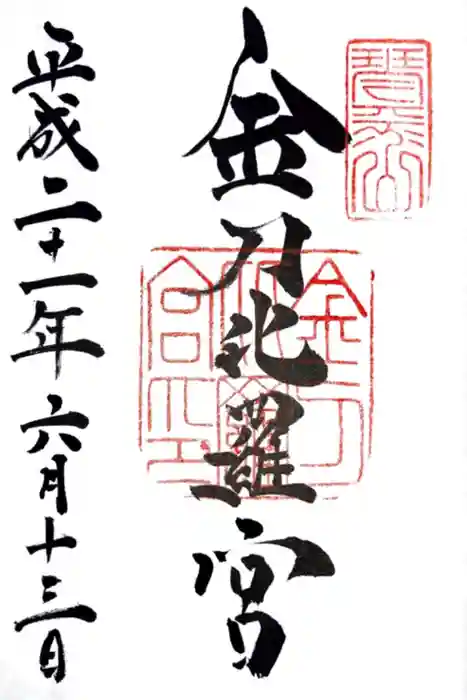 琴平山
金刀比羅宮
金刀
比羅
宮印
平成二十一年六月十三日